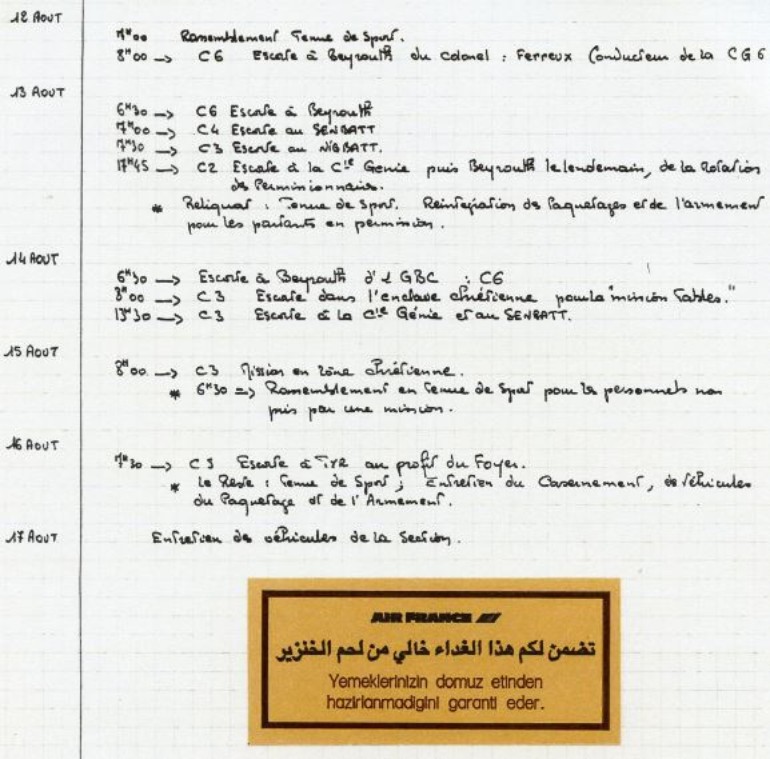 12 AOUT
7H00 Rassemblement Tenue de Sport.
8H00 → C6 Escorte à Beyrouth du Colonel : Ferreux Conducteur de la CG6
13 AOUT
6H30 → C6 Escorte à Beyrouth
7H00 → C4 Escorte au SENBATT
7H30 → C3 Escorte au NIGBATT.
17H45 → C2 Escorte à la Cie Génie puis Beyrouth le lendemain, de la Rotation
des Permissionnaires.
* Reliquat : Tenue de Sport. Reintégration des Paquetages et de l'armement
pour les partants en permission.
14 AOUT
6H30 → Escorte à Beyrouth d'1 GBC : C6
8H00 → C3 Escorte dans l'enclave chrétienne pour la "mission Tables."
13H30 → C3 Escorte à la Cie Génie et au SENBATT.
15 AOUT
8H00 → C3 Mission en zône chrétienne.
* 6H30 => Rassemblement en tenue de Sport pour les personnels non
pris par une mission.
16 AOUT
7H30 → C3 Escorte à TYR au profit du Foyer.
* Le Reste : Tenue de Sport ; Entretien du Casernement, des Véhicules
du Paquetage et de l'Armement.
17 AOUT
Entretien des véhicules de la Section.
AIR FRANCE
تضمن لكم هذا الغداء خالي من لحم الخنزير
Yemeklerinizin domuz etinden
hazirlanmadigini garanti eder.